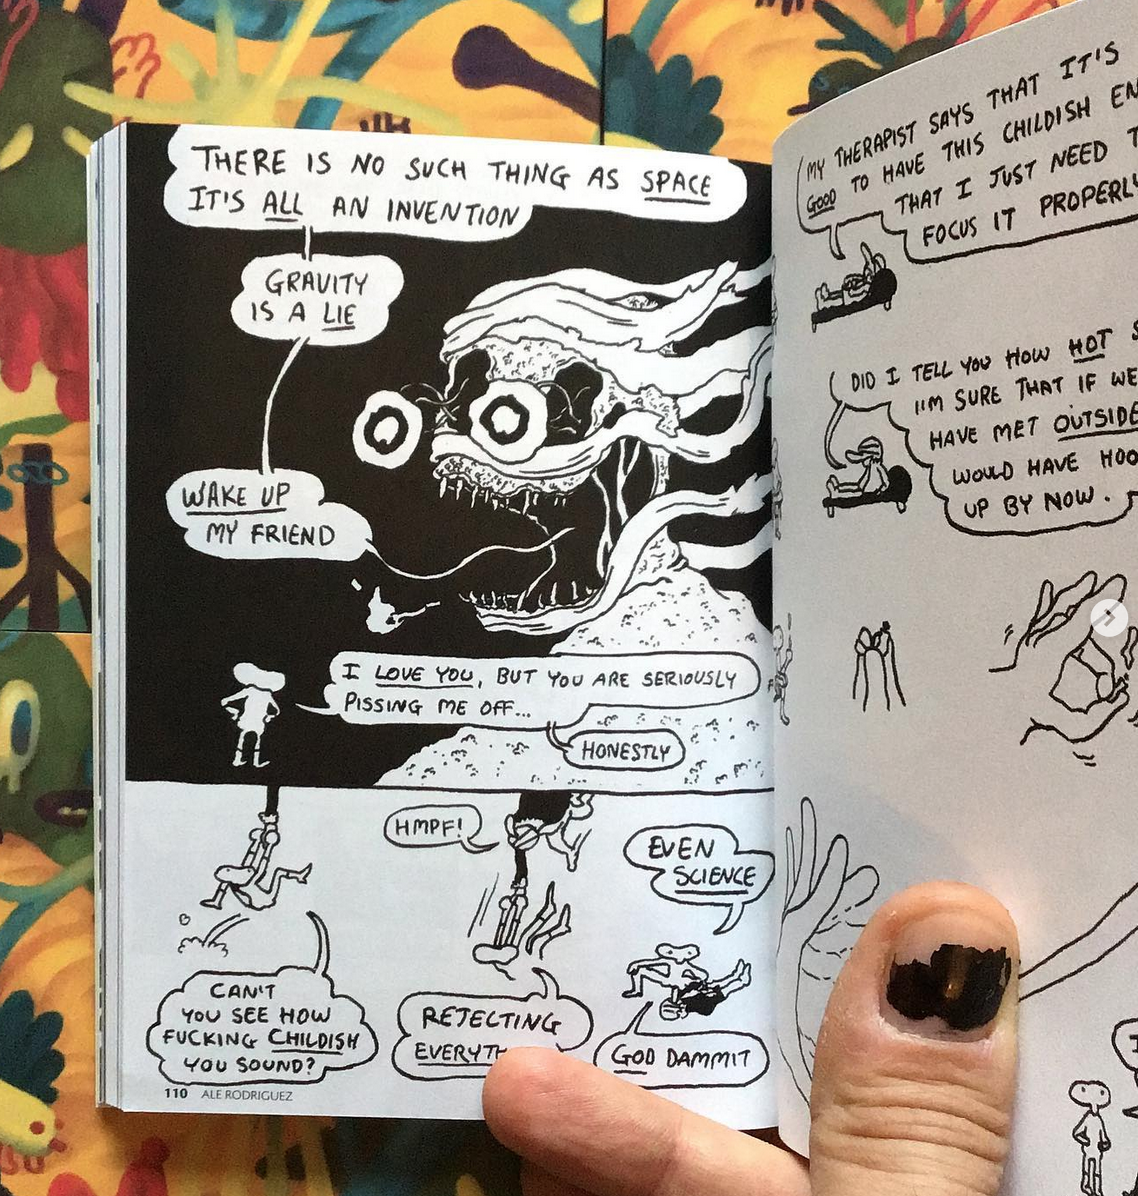 THERE IS NO SUCH THING AS SPACE
IT'S ALL AN INVENTION
GRAVITY
IS A LIE
WAKE UP
MY FRIEND
I LOVE YOU, BUT YOU ARE SERIOUSLY
PISSING ME OFF...
HONESTLY
HMPF!
EVEN
SCIENCE
CAN'T
YOU SEE HOW
FUCKING CHILDISH
YOU SOUND?
REJECTING
GOD DAMMIT
110 ALE RODRIGUEZ
MY THERAPIST SAYS THAT IT'S
GOOD TO HAVE THIS CHILDISH
THAT I JUST NEED
FOCUS IT PROPERLY
DID I TELL YOU HOW HOT
I'M SURE THAT IF WE
HAVE MET OUTSIDE
WOULD HAVE
UP BY NOW.